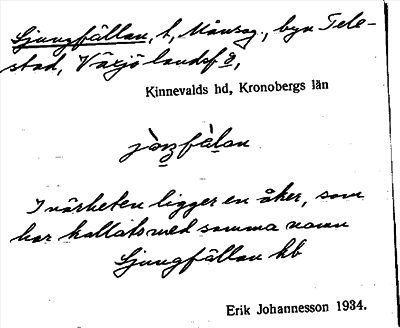 Ljungfällan, t, Månsag., byn Tele-
stad, Växjö landsf ö,
Kinnevalds hd, Kronobergs län
I närheten ligger en åker, som
har kallats med samma namn
Ljungfällan hb
Erik Johannesson 1934.